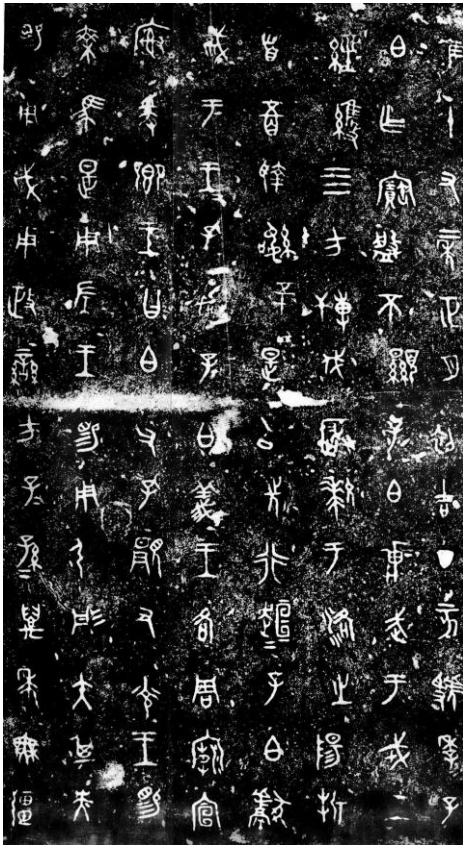 隹十又二年正月初吉丁亥虢季子
白乍寶盤不顯子白壯武于戎工
經維四方搏伐玁狁于洛之陽折
首五百執訊五十是以先行趄=子白獻
馘于王王孔加子白義王各周廟宣
廚爰卿王曰白父孔顯又光王睗
乘馬是用左王睗用弓彤矢其央
睗用戉用政蠻方子=孫=萬年無疆